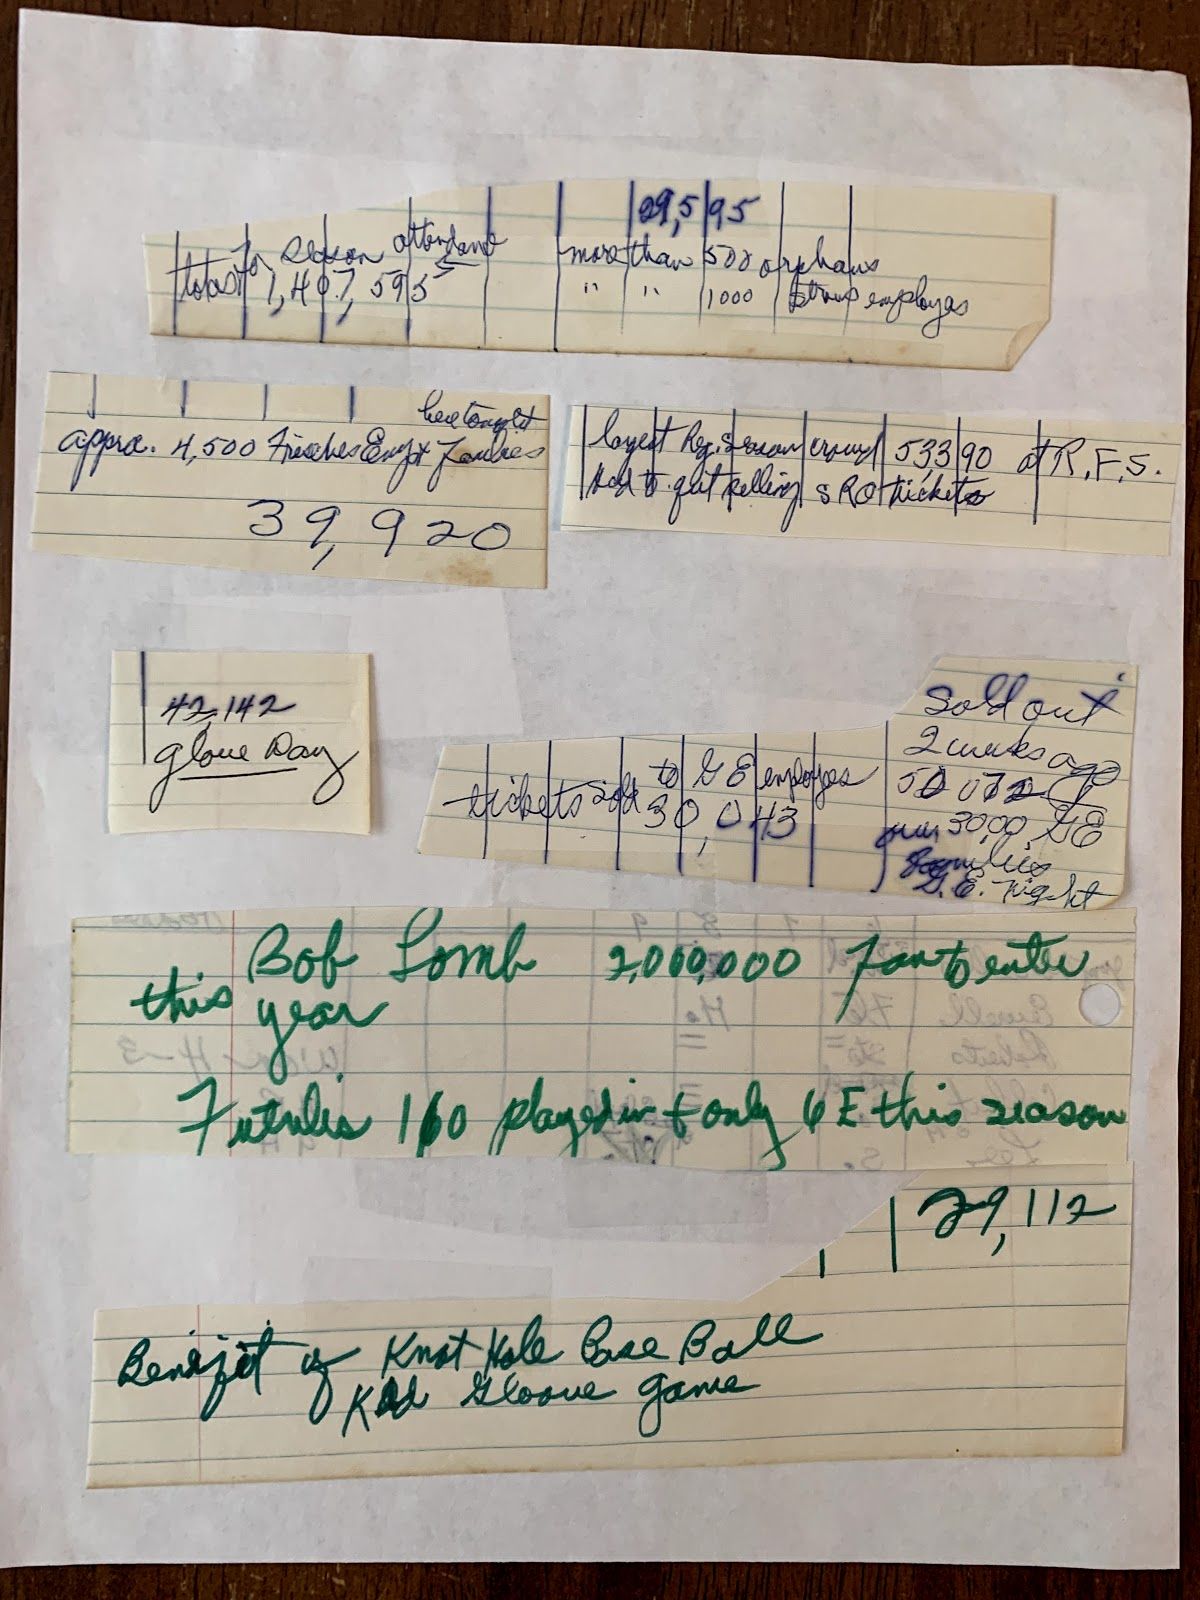 29,595
total for season attendance
1,407,595
more than 500 orphans
" " 1000 employes
here tonight
approx. 4,500 Frisches Emp + Families
39,920
largest Reg. season crowd 53,390 at R.F.S.
Had to quit selling SRO tickets
42,142
Glove Day
tickets sold to GE employes
30,043
Sold out
2 weeks ago
over 30,00, GE
Families
G.E. Night
Bob Lomb 2,000,000 Fan to enter
this year
160 played in + only 6 E this season
29,112
Benefit of Knot Hole Base Ball
Kid Gloove game